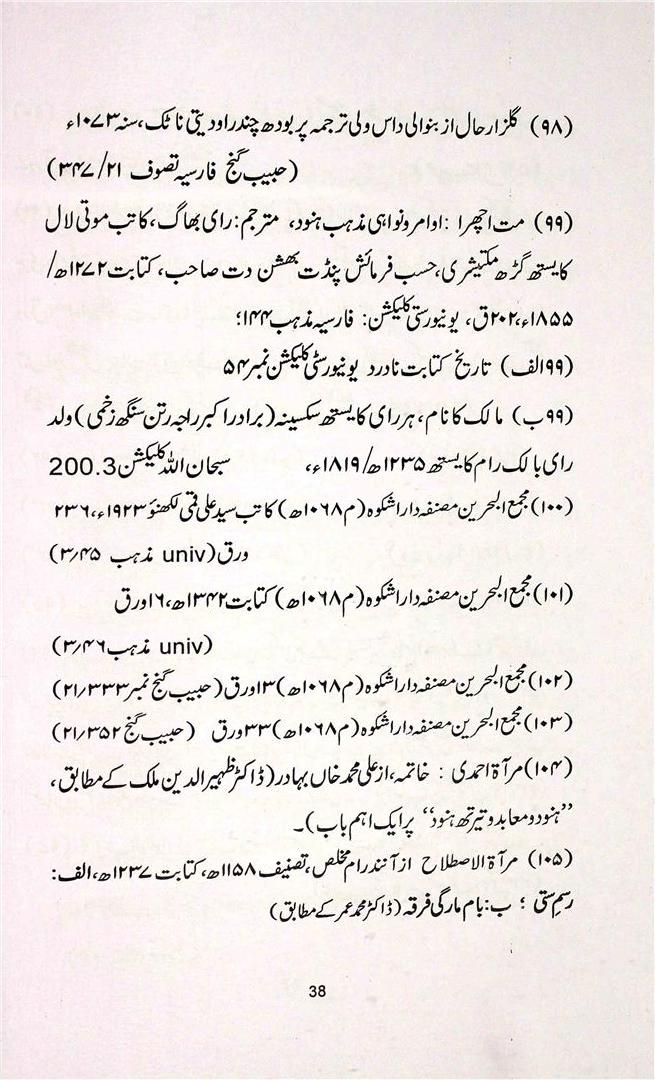 (۹۸) گلزار حال از بنوالی داس ولی ترجمہ پر بودھ چندراودیتی ناٹک، سنہ ۱۰۷۳ء
(حبیب گنج فارسیہ تصوف ۲۱/ ۳۴۷)
(۹۹) مت اچھرا : اوامر ونواہی مذہب ہنود، مترجم: رای بھاگ، کاتب موتی لال
کایستھ گڑھ مکتیشری، حسب فرمائش پنڈت بھشن دت صاحب، کتابت ۱۲۷۲ھ/
۱۸۵۵ء، ۲۰۲ق، یونیورسٹی کلیکشن: فارسیہ مذہب ۱۴۴؛
(۹۹ الف) تاریخ کتابت نادرد یونیورسٹی کلیکشن نمبر ۵۴
(۹۹ ب) مالک کا نام، ہررای کایستھ سکسینہ (برادر اکبر راجہ رتن سنگھ زخمی) ولد
رای بالک رام کایستھ ۱۲۳۵ھ/ ۱۸۱۹ء، سبحان اللہ کلیکشن 200.3
(۱۰۰) مجمع البحرین مصنفہ دارا شکوہ (م ۱۰۶۸ھ) کاتب سید علی نقی لکھنؤ ۱۹۲۳ء، ۲۳۶
ورق (univ مذہب ۳/۴۵)
(۱۰۱) مجمع البحرین مصنفہ دارا شکوہ (م ۱۰۶۸ھ) کتابت ۱۳۴۲ھ، ۱۶ ورق
(univ مذہب ۳/۴۶)
(۱۰۲) مجمع البحرین مصنفہ دارا شکوہ (م ۱۰۶۸ھ) ۱۳ ورق (حبیب گنج نمبر ۲۱/۳۳۳)
(۱۰۳) مجمع البحرین مصنفہ دارا شکوہ (م ۱۰۶۸ھ) ۳۳ ورق (حبیب گنج ۲۱/۳۵۲)
(۱۰۴) مرآۃ احمدی : خاتمہ، از علی محمد خاں بہادر (ڈاکٹر ظہیر الدین ملک کے مطابق،
”ہنود و معابد و تیرتھ ہنود“ پر ایک اہم باب)۔
(۱۰۵) مرآۃ الاصطلاح از آنند رام مخلص، تصنیف ۱۱۵۸ھ، کتابت ۱۲۳۷ھ، الف:
رسم ستی ؛ ب: بام مارگی فرقہ (ڈاکٹر محمد عمر کے مطابق)
38